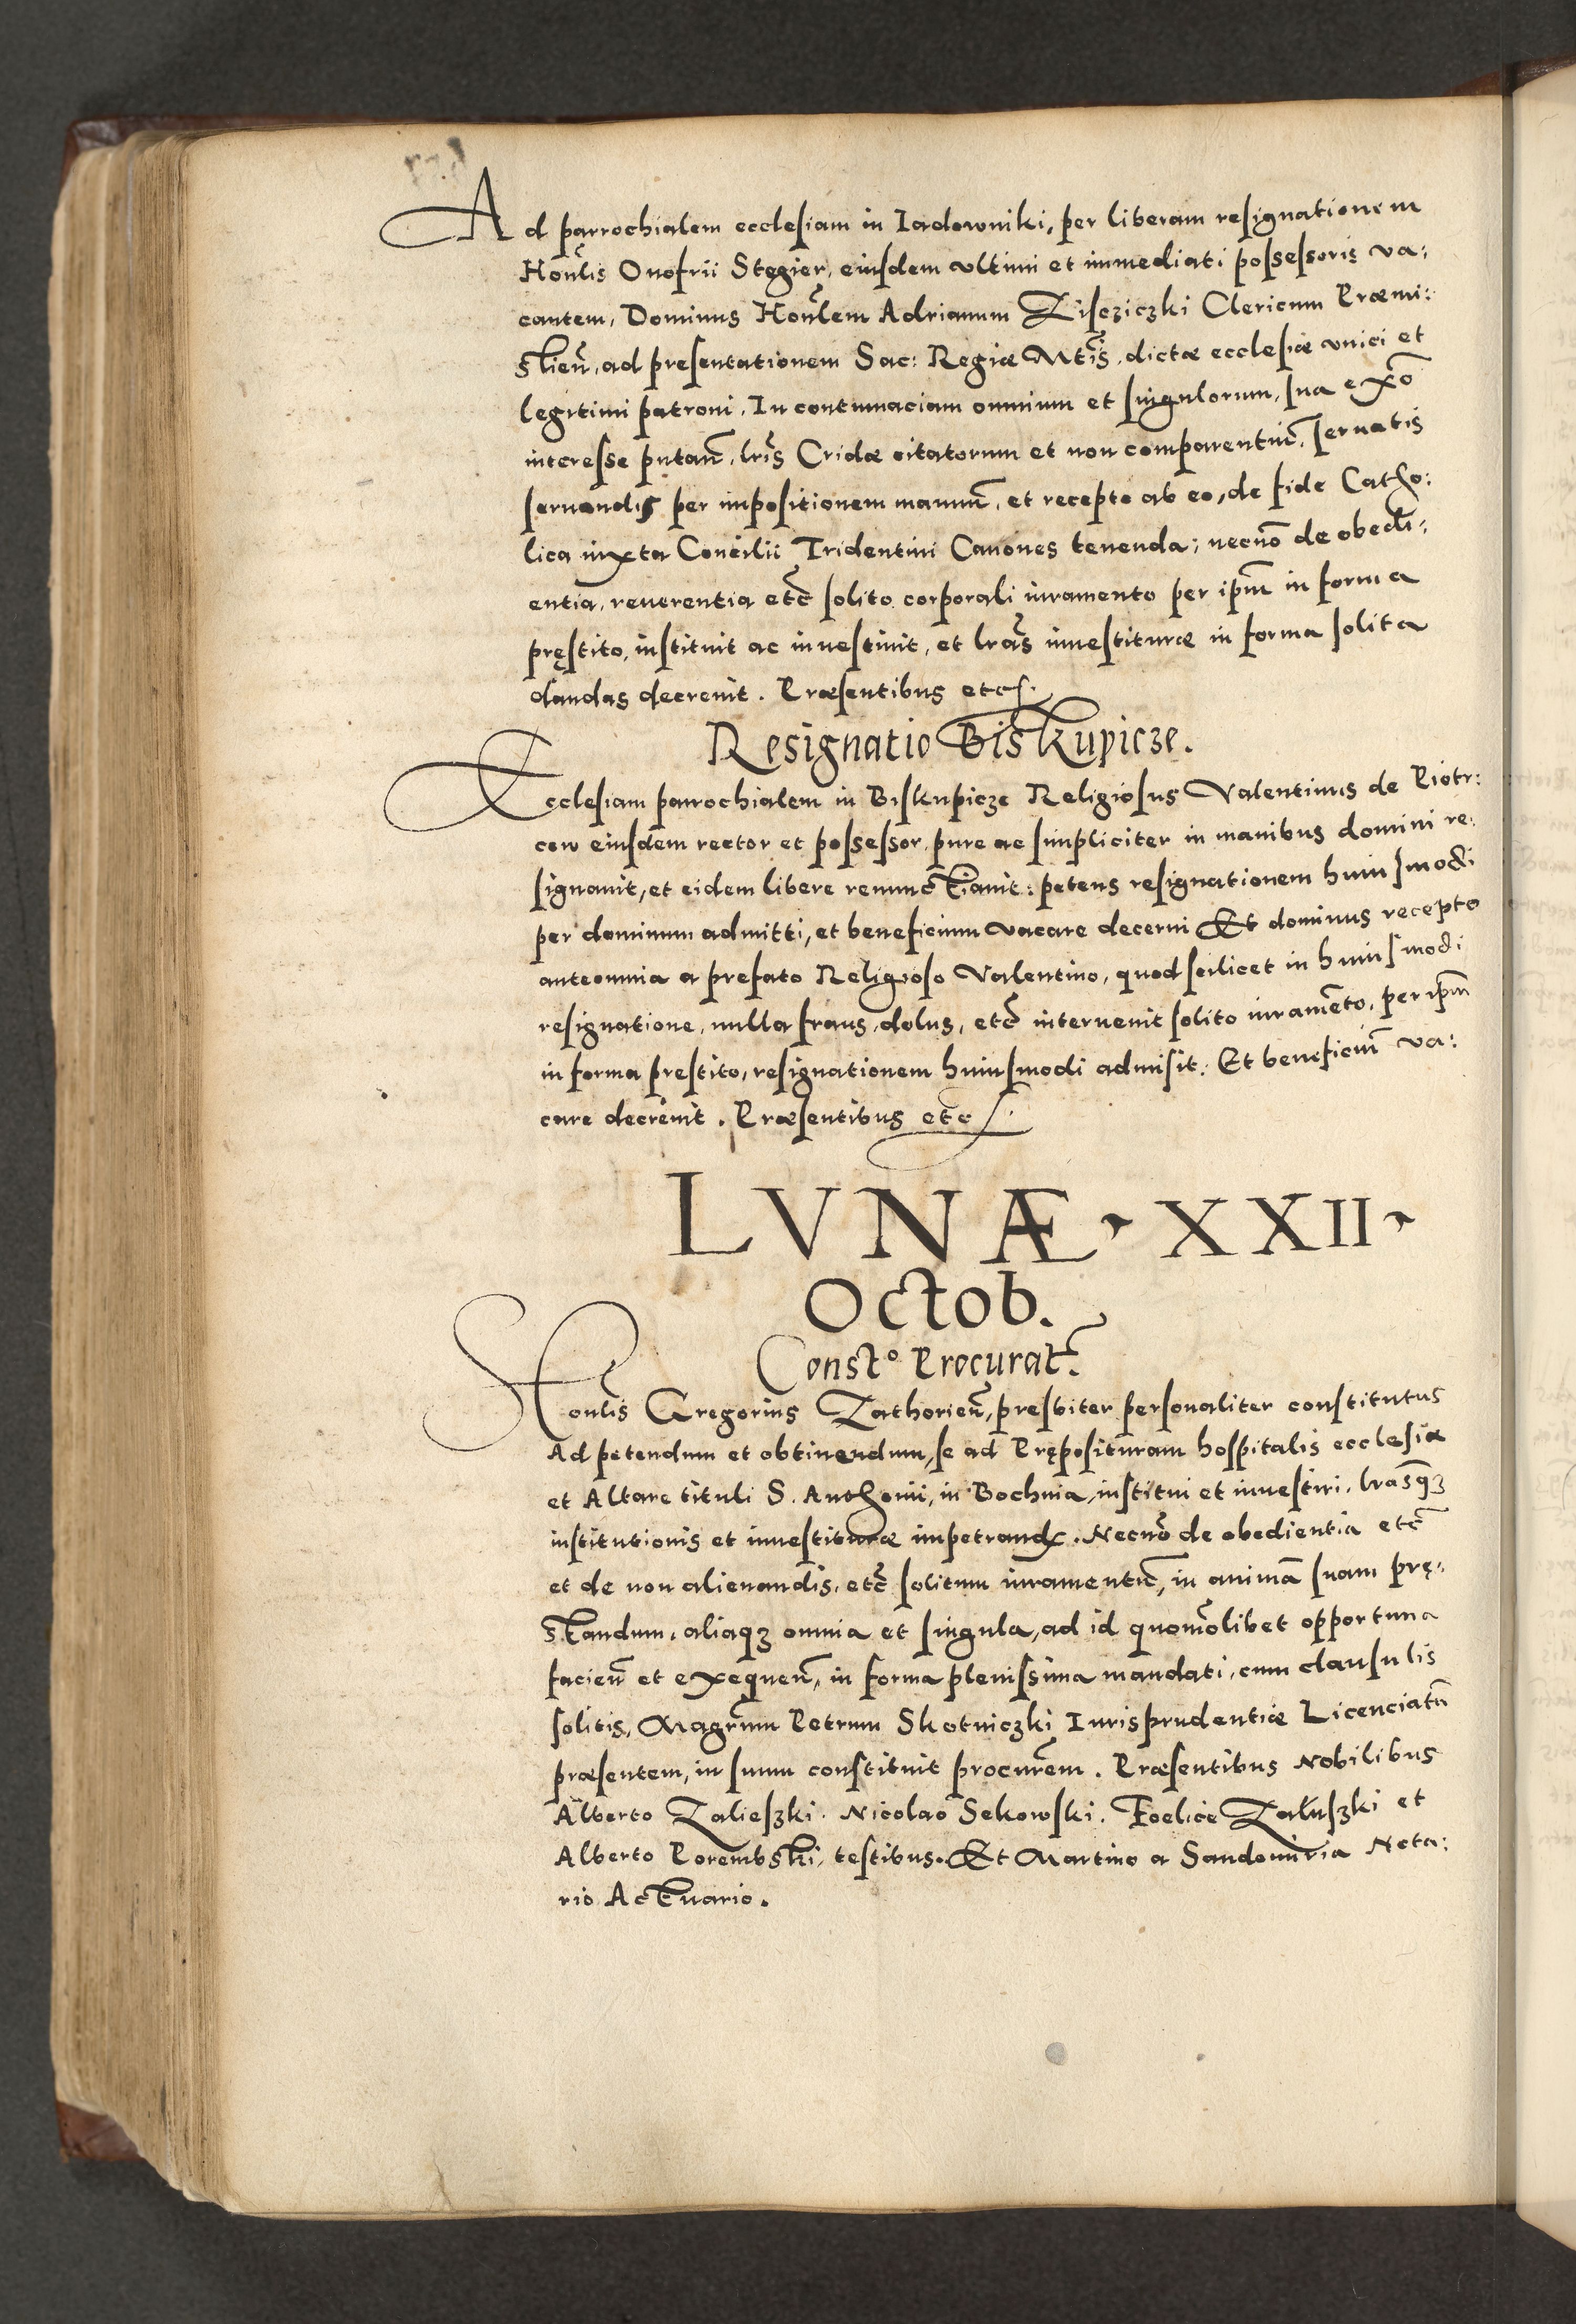 Ad parrochialem ecclesiam in Iadowniki, per liberam resignationem
Honlis Onofrii Stęgier, eiusdem vltimi et immediati possessoris va:
cantem, Dominus Honlem Adrianum Ziscziczki Clericum Præmi:
slien, ad presentationem Sac: Regiæ Mtis, dictæ ecclesiæ vnici et
legitimi patroni. In contumaciam omnium et singulorum, sua ex~o
interesse putan, lris Cridæ citatorum et non comparentiũ, seruatis
seruandis per impositionem manuũ, et recepto ab eo, de fide Catho:
lica iuxta Concilii Tridentini Canones tenenda; necnõ de obedi:
entia, reuerentia etc̃ solito corporali iuramento per ipm̃ in forma
pręstito, instituit ac inuestiuit, et lras inuestituræ in forma solita
dandas decreuit. Præsentibus etc.
Resignatio Biskupicze.
Ecclesiam parrochialem in Biskupicze Religiosus Valentinus de Piotr:
cow eiusdem rector et possessor, pure ac simpliciter in manibus domini re:
signauit, et eidem libere renunctiauit: petens resignationem huiusmodi
per dominum admitti, et beneficium vacare decerni Et dominus recepto
anteomnia a prefato Religioso Valentino, quod scilicet in huiusmodi
resignatione, nulla fraus, dolus, etc̃ interuenit solito iuramẽto, per ipm̃
in forma prestito, resignationem huiusmodi admisit. Et beneficiũ va:
care decreuit. Præsentibus etc.
LVNÆ · XXII ·
Octob.
Const° Procurat~.
Honlis Gregorius Zathorien, presbiter personaliter constitutus
Ad petendum et obtinendum, se ad Pręposituram hospitalis ecclesiæ
et Altare tituli S. Anthonii, in Bochnia, institui et inuestiri, lrasqꝫ
institutionis et inuestituræ impetrand. Necnõ de obedientia etc̃
et de non alienandis, etc̃ solitum iuramentũ, in animã suam prę:
standum, aliaqꝫ omnia et singula, ad id quomõlibet opportuna
facien̄ et exequen̄, in forma plenissima mandati, cum clausulis
solitis, Magrum Petrum Skotniczki Iurisprudentiæ Licenciatũ
præsentem, in suum constituit procurẽm. Præsentibus Nobilibus
Alberto Zalieszki. Nicolao Sekowski. Foelice Załuszki et
Alberto Porembski, testibus. Et Martino a Sandomiria Nota:
rio Actuario.